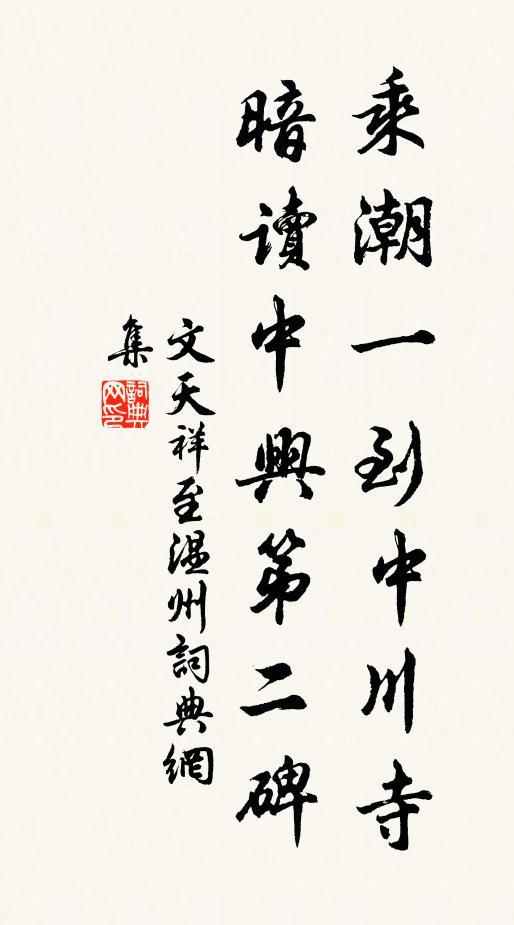 乘潮一到中川寺
暗讀中興第二碑
文天祥至温州詞典網
集
詞典
网印